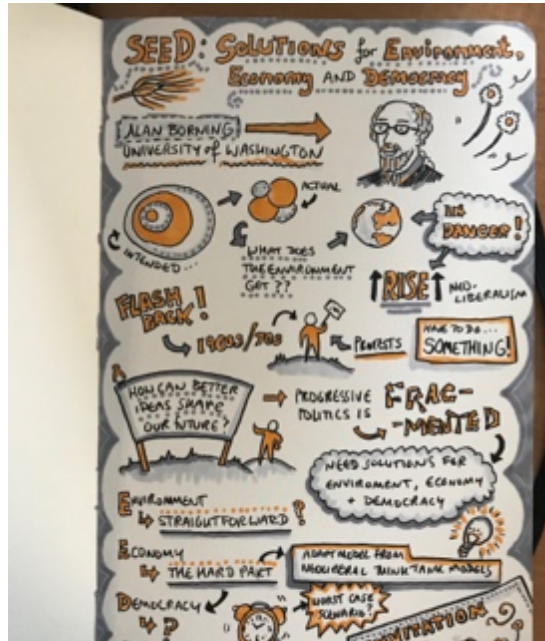 SEED: SOLUTIONS for ENVIRONMENT,
ECONOMY AND DEMOCRACY
ALAN BORNING
UNIVERSITY of WASHINGTON
INTENDED...
ACTUAL
WHAT DOES
THE ENVIRONMENT
GET ??
IN
DANGER!
RISE
NEO-
LIBERALISM
FLASH
BACK!
1960s/70s
PROTESTS
HAVE TO DO...
SOMETHING!
HOW CAN BETTER
IDEAS SHAPE
OUR FUTURE?
PROGRESSIVE
POLITICS IS
FRAG-
-MENTED
NEED SOLUTIONS FOR
ENVIROMENT, ECONOMY
+ DEMOCRACY
ENVIRONMENT
STRAIGHTFORWARD?
ECONOMY
THE HARD PART
ADAPT MODEL FROM
NEOLIBERAL THINK TANK MODELS
DEMOCRACY
?
WORST CASE
SCENARIO?